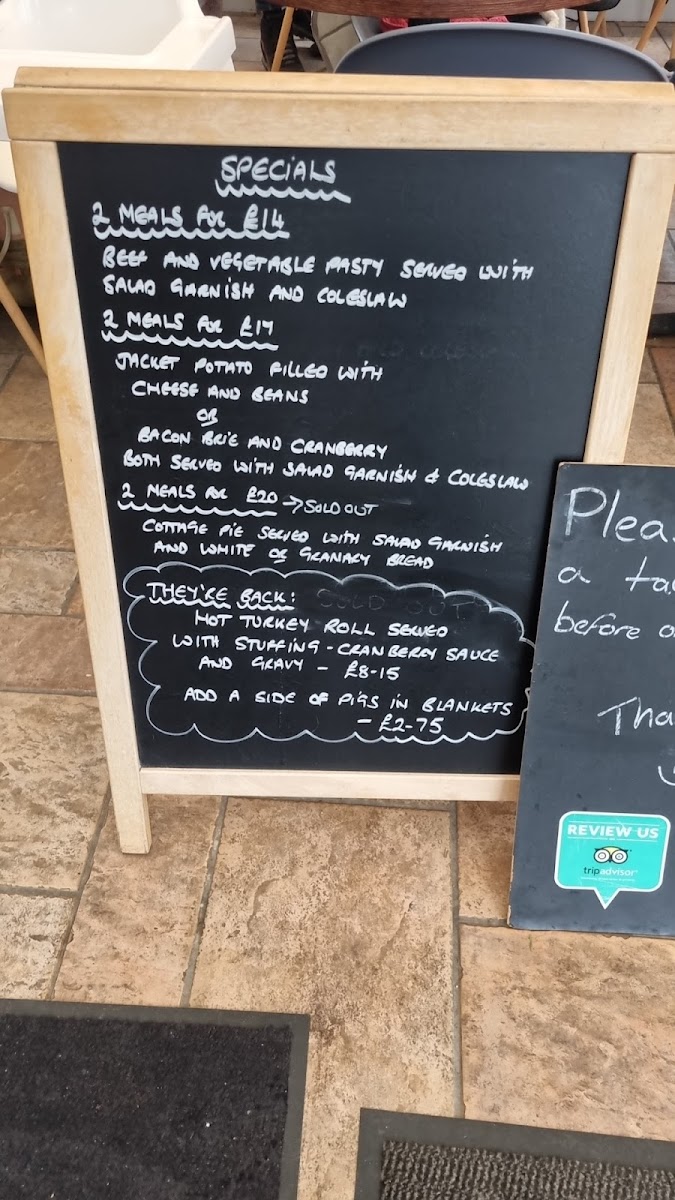 SPECIALS
2 MEALS FOR £14
BEEF AND VEGETABLE PASTY SERVED WITH
SALAD GARNISH AND COLESLAW
2 MEALS FOR £17
JACKET POTATO FILLED WITH
CHEESE AND BEANS
OR
BACON BRIE AND CRANBERRY
BOTH SERVED WITH SALAD GARNISH & COLESLAW
2 MEALS FOR £20 → SOLD OUT
COTTAGE PIE SERVED WITH SALAD GARNISH
AND WHITE OR GRANARY BREAD
THEY'RE BACK: SOLD OUT
HOT TURKEY ROLL SERVED
WITH STUFFING - CRANBERRY SAUCE
AND GRAVY - £8-15
ADD A SIDE OF PIGS IN BLANKETS
- £2-75
Pleas
a ta
before o
Tha
REVIEW US
ON
tripadvisor